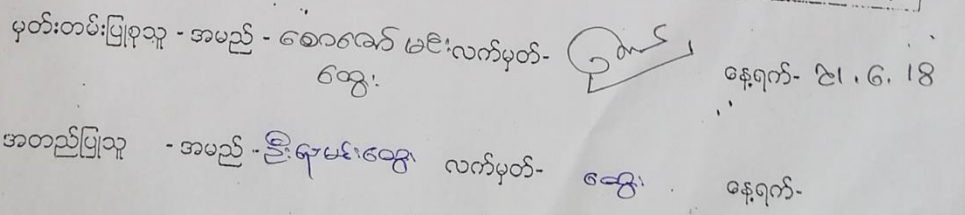 မှတ်းတမ်းပြုစုသူ - အမည် - စောဇော် မင်း လက်မှတ်- နေ့ရက်- ၉၁.6.18
ထွေး
အတည်ပြုသူ - အမည် - ဦး မင်းထွေး လက်မှတ်- ထွေး နေ့ရက်-